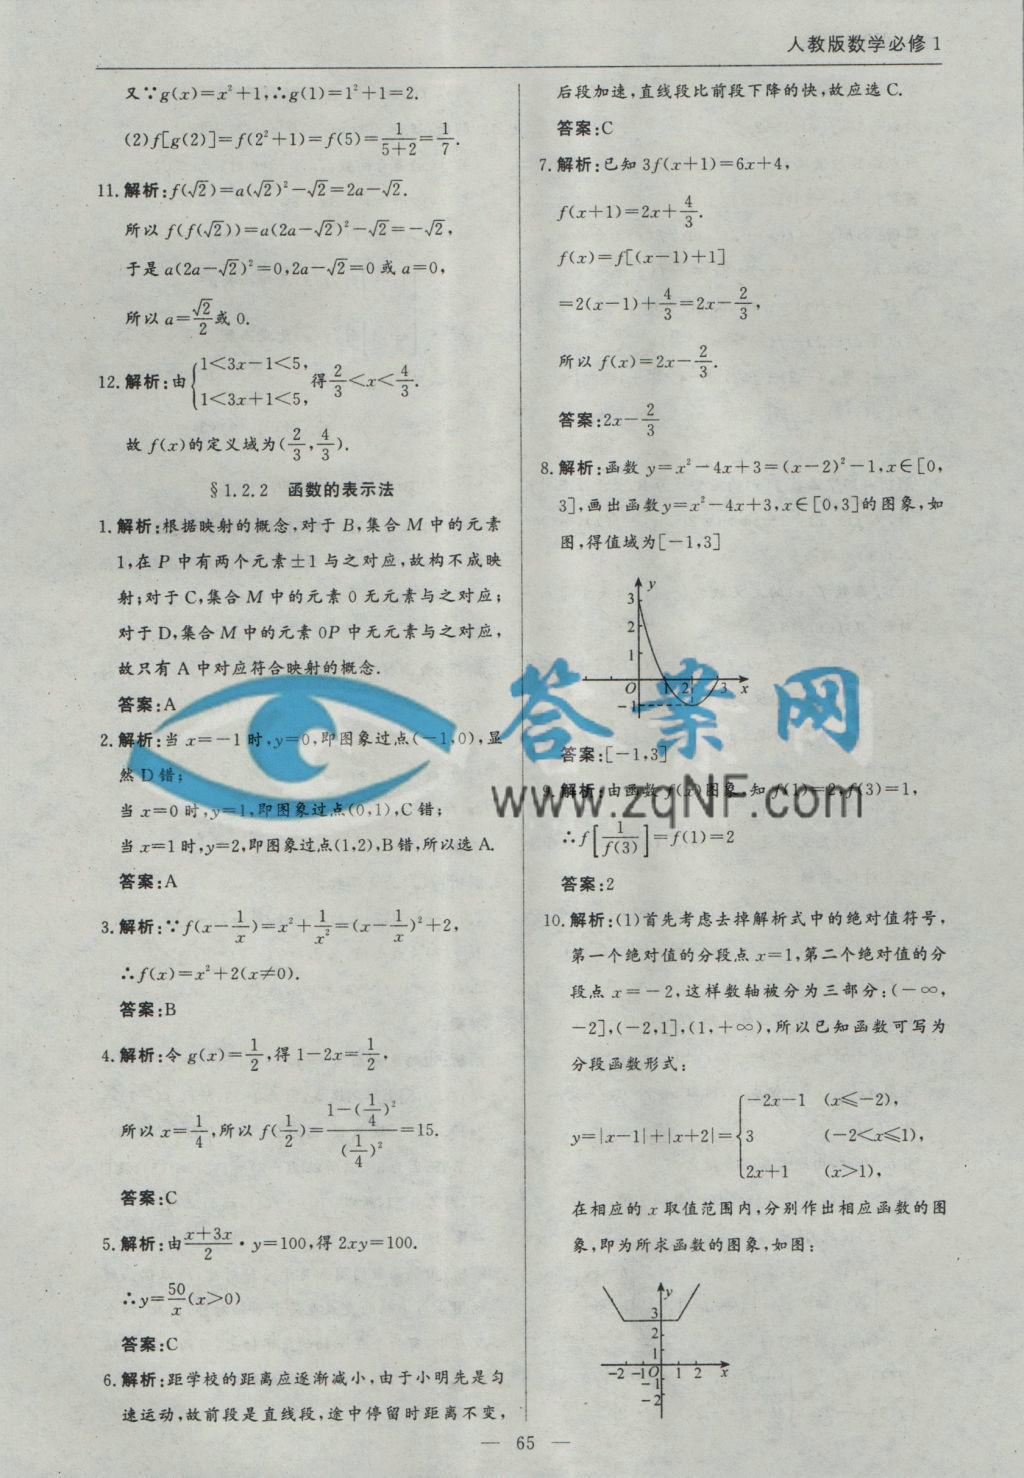 人教版数学必修1
又∵g(x)=x²+1,∴g(1)=1²+1=2.
(2)f[g(2)]=f(2²+1)=f(5)=1/(5+2)=1/7.
11.解析:f(√2)=a(√2)²-√2=2a-√2.
所以 f(f(√2))=a(2a-√2)²-√2=-√2,
于是 a(2a-√2)²=0,2a-√2=0 或 a=0,
所以 a=√2/2或 0.
12.解析:由{1<3x-1<5,
1<3x+1<5, 得 2/3<x<4/3.
故 f(x)的定义域为(2/3,4/3).
§1.2.2 函数的表示法
1.解析:根据映射的概念,对于 B,集合 M 中的元素
1,在 P 中有两个元素±1 与之对应,故构不成映
射;对于 C,集合 M 中的元素 0 无元素与之对应;
对于 D,集合 M 中的元素 0P 中无元素与之对应,
故只有 A 中对应符合映射的概念.
答案:A
2.解析:当 x=-1 时,y=0,即图象过点(-1,0),显
然 D 错;
当 x=0 时,y=1,即图象过点(0,1),C 错;
当 x=1 时,y=2,即图象过点(1,2),B 错,所以选 A.
答案:A
3.解析:∵f(x-1/x)=x²+1/x²=(x-1/x)²+2,
∴f(x)=x²+2(x≠0).
答案:B
4.解析:令 g(x)=1/2,得 1-2x=1/2,
所以 x=1/4,所以 f(1/2)=(1-(1/4)²)/(1/4)²=15.
答案:C
5.解析:由(x+3x)/2·y=100,得 2xy=100.
∴y=50/x(x>0)
答案:C
6.解析:距学校的距离应逐渐减小,由于小明先是匀
速运动,故前段是直线段,途中停留时距离不变,
后段加速,直线段比前段下降的快,故应选 C.
答案:C
7.解析:已知 3f(x+1)=6x+4,
f(x+1)=2x+4/3.
f(x)=f[(x-1)+1]
=2(x-1)+4/3=2x-2/3,
所以 f(x)=2x-2/3.
答案:2x-2/3
8.解析:函数 y=x²-4x+3=(x-2)²-1,x∈[0,
3],画出函数 y=x²-4x+3,x∈[0,3]的图象,如
图,得值域为[-1,3]
y
3
2
1
O 1 2 3 x
-1
答案:[-1,3]
9.解析:由函数 f(x)图象,知 f(1)=2,f(3)=1,
∴f[1/f(3)]=f(1)=2
答案:2
10.解析:(1)首先考虑去掉解析式中的绝对值符号,
第一个绝对值的分段点 x=1,第二个绝对值的分
段点 x=-2,这样数轴被分为三部分:(-∞,
-2],(-2,1],(1,+∞),所以已知函数可写为
分段函数形式:
y=|x-1|+|x+2|={-2x-1 (x≤-2),
3 (-2<x≤1),
2x+1 (x>1),
在相应的 x 取值范围内,分别作出相应函数的图
象,即为所求函数的图象,如图:
y
3
2
1
-2 -1 O 1 2 x
-1
-2
答案网
www.zqNF.com
— 65 —